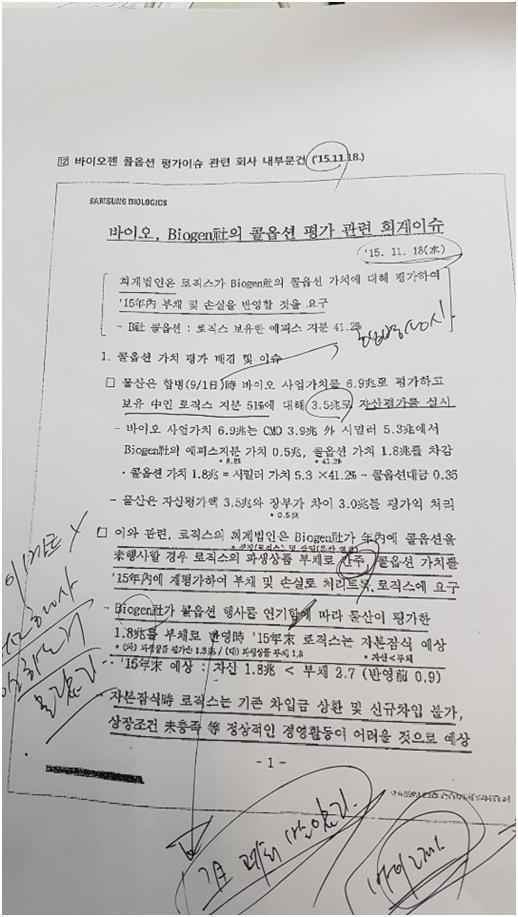 12 바이오젠 콜옵션 평가이슈 관련 회사 내부문건 ('15.11.18.)
SAMSUNG BIOLOGICS
바이오, Biogen社의 콜옵션 평가 관련 회계이슈
'15. 11. 18(水)
회계법인은 로직스가 Biogen社의 콜옵션 가치에 대해 평가하여
'15年內 부채 및 손실을 반영할 것을 요구
- B社 콜옵션 : 로직스 보유한 에피스 지분 41.2%
1. 콜옵션 가치 평가 배경 및 이슈
□ 물산은 합병(9/1日)時 바이오 사업가치를 6.9兆로 평가하고
보유 中인 로직스 지분 51%에 대해 3.5兆로 자산평가를 실시
- 바이오 사업가치 6.9兆는 CMO 3.9兆 外 시밀러 5.3兆에서
Biogen社의 에피스지분 가치 0.5兆, 콜옵션 가치 1.8兆를 차감
* 8.8% * 41.2%
· 콜옵션 가치 1.8兆 = 시밀러 가치 5.3 ×41.2% - 콜옵션대금 0.35
- 물산은 자산평가액 3.5兆와 장부가 차이 3.0兆를 평가익 처리
* 0.5兆
□ 이와 관련, 로직스의 회계법인은 Biogen社가 年內에 콜옵션을
未행사할 경우 로직스의 파생상품 부채로 간주, 콜옵션 가치를
'15年內에 재평가하여 부채 및 손실로 처리토록 로직스에 요구
- Biogen社가 콜옵션 행사를 연기함에 따라 물산이 평가한
1.8兆를 부채로 반영時 '15年末 로직스는 자본잠식 예상
* (차) 파생상품 평가손 1.8兆 / (대) 파생상품 부채 1.8 * 자산<부채
· '15年末 예상 : 자산 1.8兆 < 부채 2.7 (반영前 0.9)
- 자본잠식時 로직스는 기존 차입금 상환 및 신규차입 불가,
상장조건 未충족 等 정상적인 경영활동이 어려울 것으로 예상
- 1 -